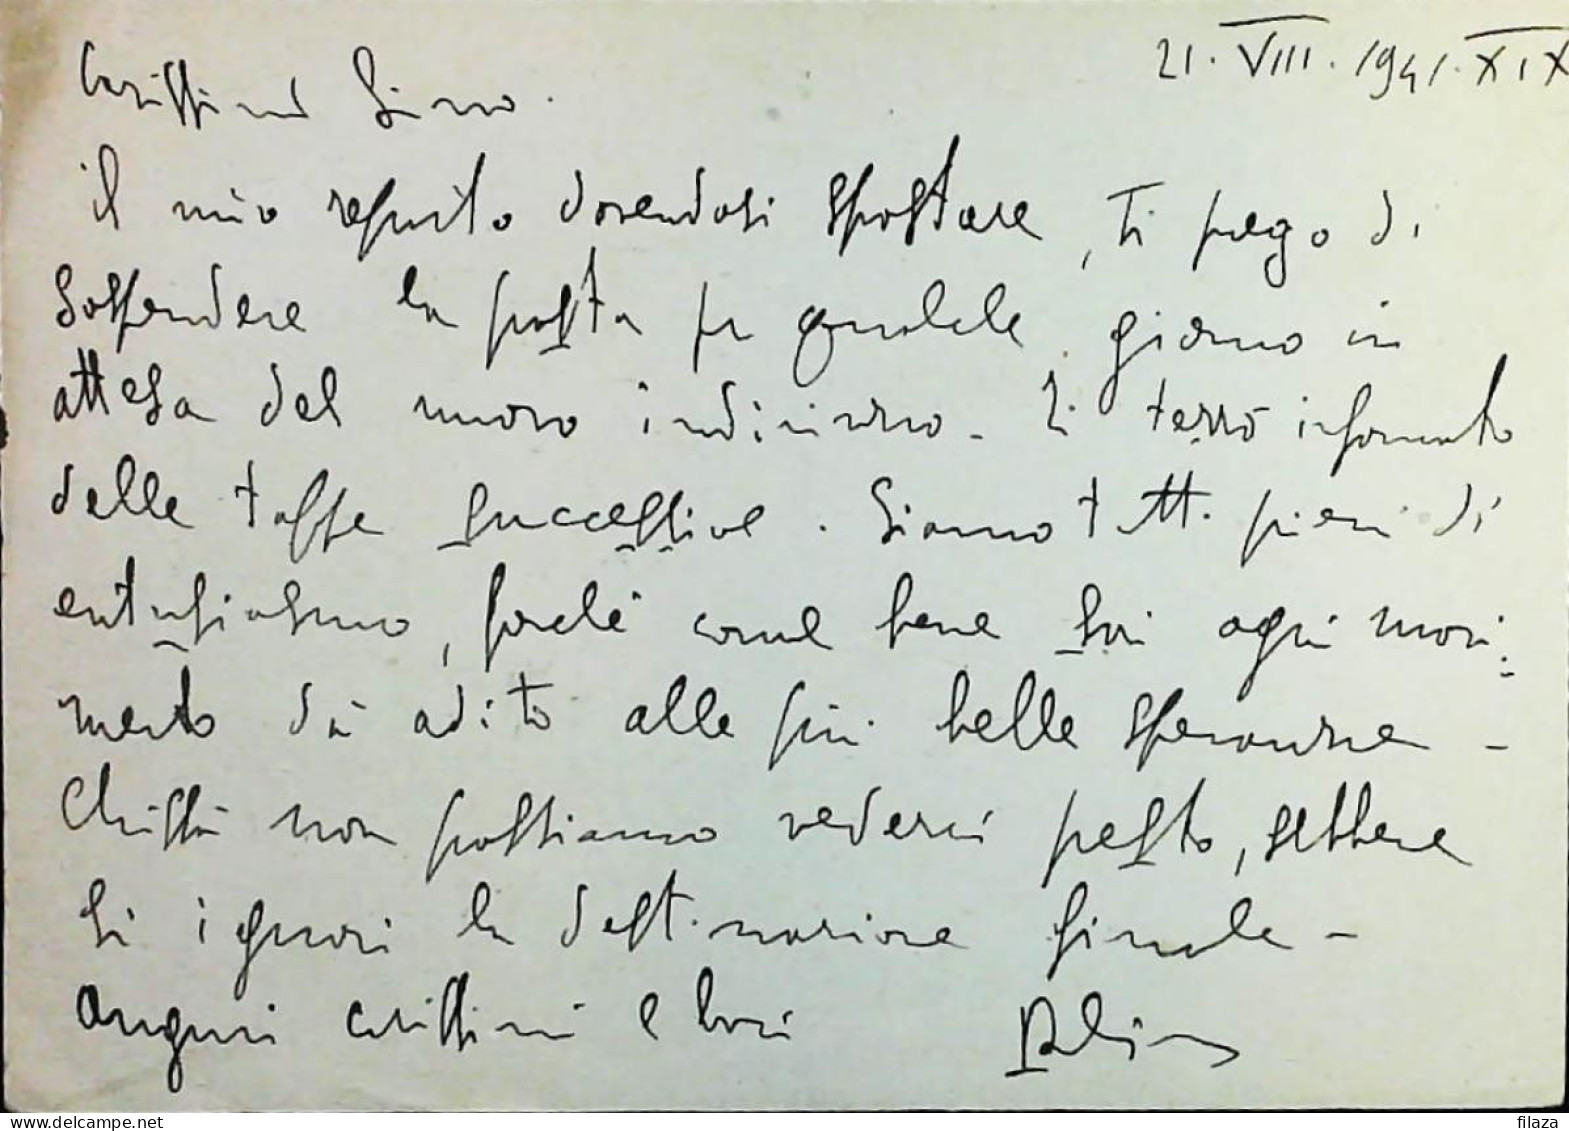 21.VIII.1941.XIX
Carissimo Gino.
il mio reparto dovendosi spostare, ti prego di
sospendere la posta per qualche giorno in
attesa del nuovo indirizzo. Ti terrò informato
delle tappe successive. Siamo tutti pieni di
entusiasmo, perché come bene sai ogni movi-
mento dà adito alle più belle speranze -
Chissà non possiamo vederci presto, sebbene
si ignori la destinazione finale -
Auguri carissimi e baci
filaza